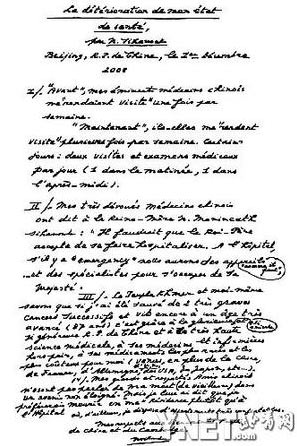 La détérioration de mon état
de santé,
par N. Sihanouk
Beijing, R.P. de Chine, le 1er Décembre
2008
I/. "Avant", mes éminents médecins chinois
me rendaient visite une fois par
semaine.
"Maintenant", ils-elles me rendent
visite plusieurs fois par semaine. Certains
jours : deux visites et examens médicaux
par jour (1 dans la matinée, 1 dans
l'après-midi).
II/. Mes très dévoués Médecins chinois
ont dit à la Reine-Mère N. Monineath
Sihanouk : "Il faudrait que le Roi-Père
accepte de se faire hospitaliser. A l'hôpital
s'il y a "emergency" nous aurons des appareils
et des spécialistes pour s'occuper de Sa
Majesté".
III/. Le Peuple khmer et moi-même
savons que si j'ai été sauvé de 2 très graves
cancers successifs et vis encore à un âge très
avancé (87 ans) c'est grâce à
la R.P. de Chine et à sa très haute
science médicale, à ses médecins et infirmières
hors pair, à ses médicaments
de France, d'Allemagne, des USA, du Japon, etc...).
IV/. Mes
n'osent pas parler de ma mort
Mais je leur ai dit que je
l'hôpital
de Chine et du Cambodge
北方网